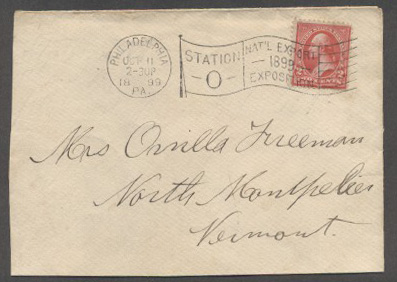 PHILADELPHIA
OCT 11
2-30P
1899
PA.
STATION
-O-
NAT'L EXPORT
1899
EXPOSITION
Mrs Orvilla Freeman
North Montpelier
Vermont.